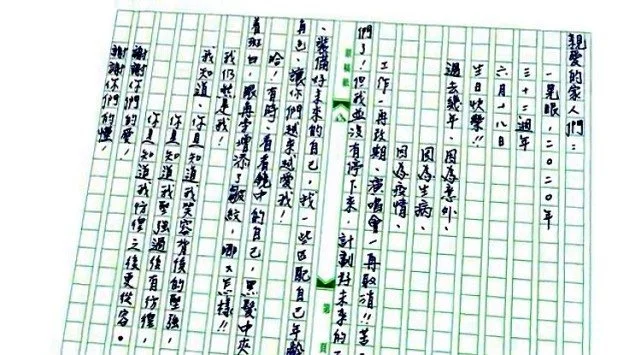 親愛的家人們：
一晃眼，二〇二〇年
三十二週年
六月十八日
生日快樂!!
過去幾年、因為意外、
因為生病、
因為疫情、
工作一再改期、演唱會一再取消!!苦
們了！但我並沒有停下來，計劃好未來的
、裝備好未來的自己，找一些匹配自己年齡
自己、讓你們越來越愛我！
哈！有時，看看鏡中的自己，黑髮中夾
着斑白，眼角旁增添了皺紋，哪又怎樣!!
我仍然是我！
我知道、你真知道我笑容背後的堅強，
你真知道我堅強過後有彷徨，
你真知道我彷徨之後更從容。
謝謝你們的愛，
謝謝你們的懂，
原稿紙
第
頁